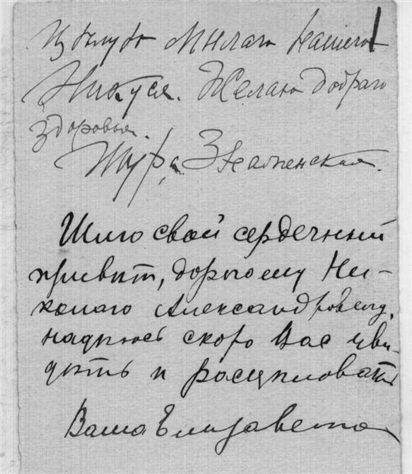 Цѣлую милаго нашего
Никуся. Желаю добраго
здоровья.
Шура Знаменская.
Шлю свой сердечный
привѣтъ, дорогому Ни-
колаю Александровичу,
надѣюсь скоро Васъ уви-
дѣть и расцѣловать
Ваша Елизавета